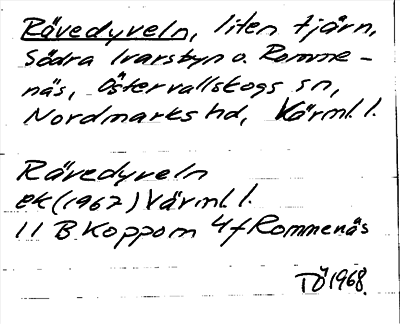 Rävedyveln, liten tjärn,
Södra Ivarsbyn o. Romme-
näs, Östervallskogs sn,
Nordmarks hd, Värml. l.
Rävedyveln
ek (1967) Värml l.
11 B Koppom 4f Rommenäs
TÖ 1968.